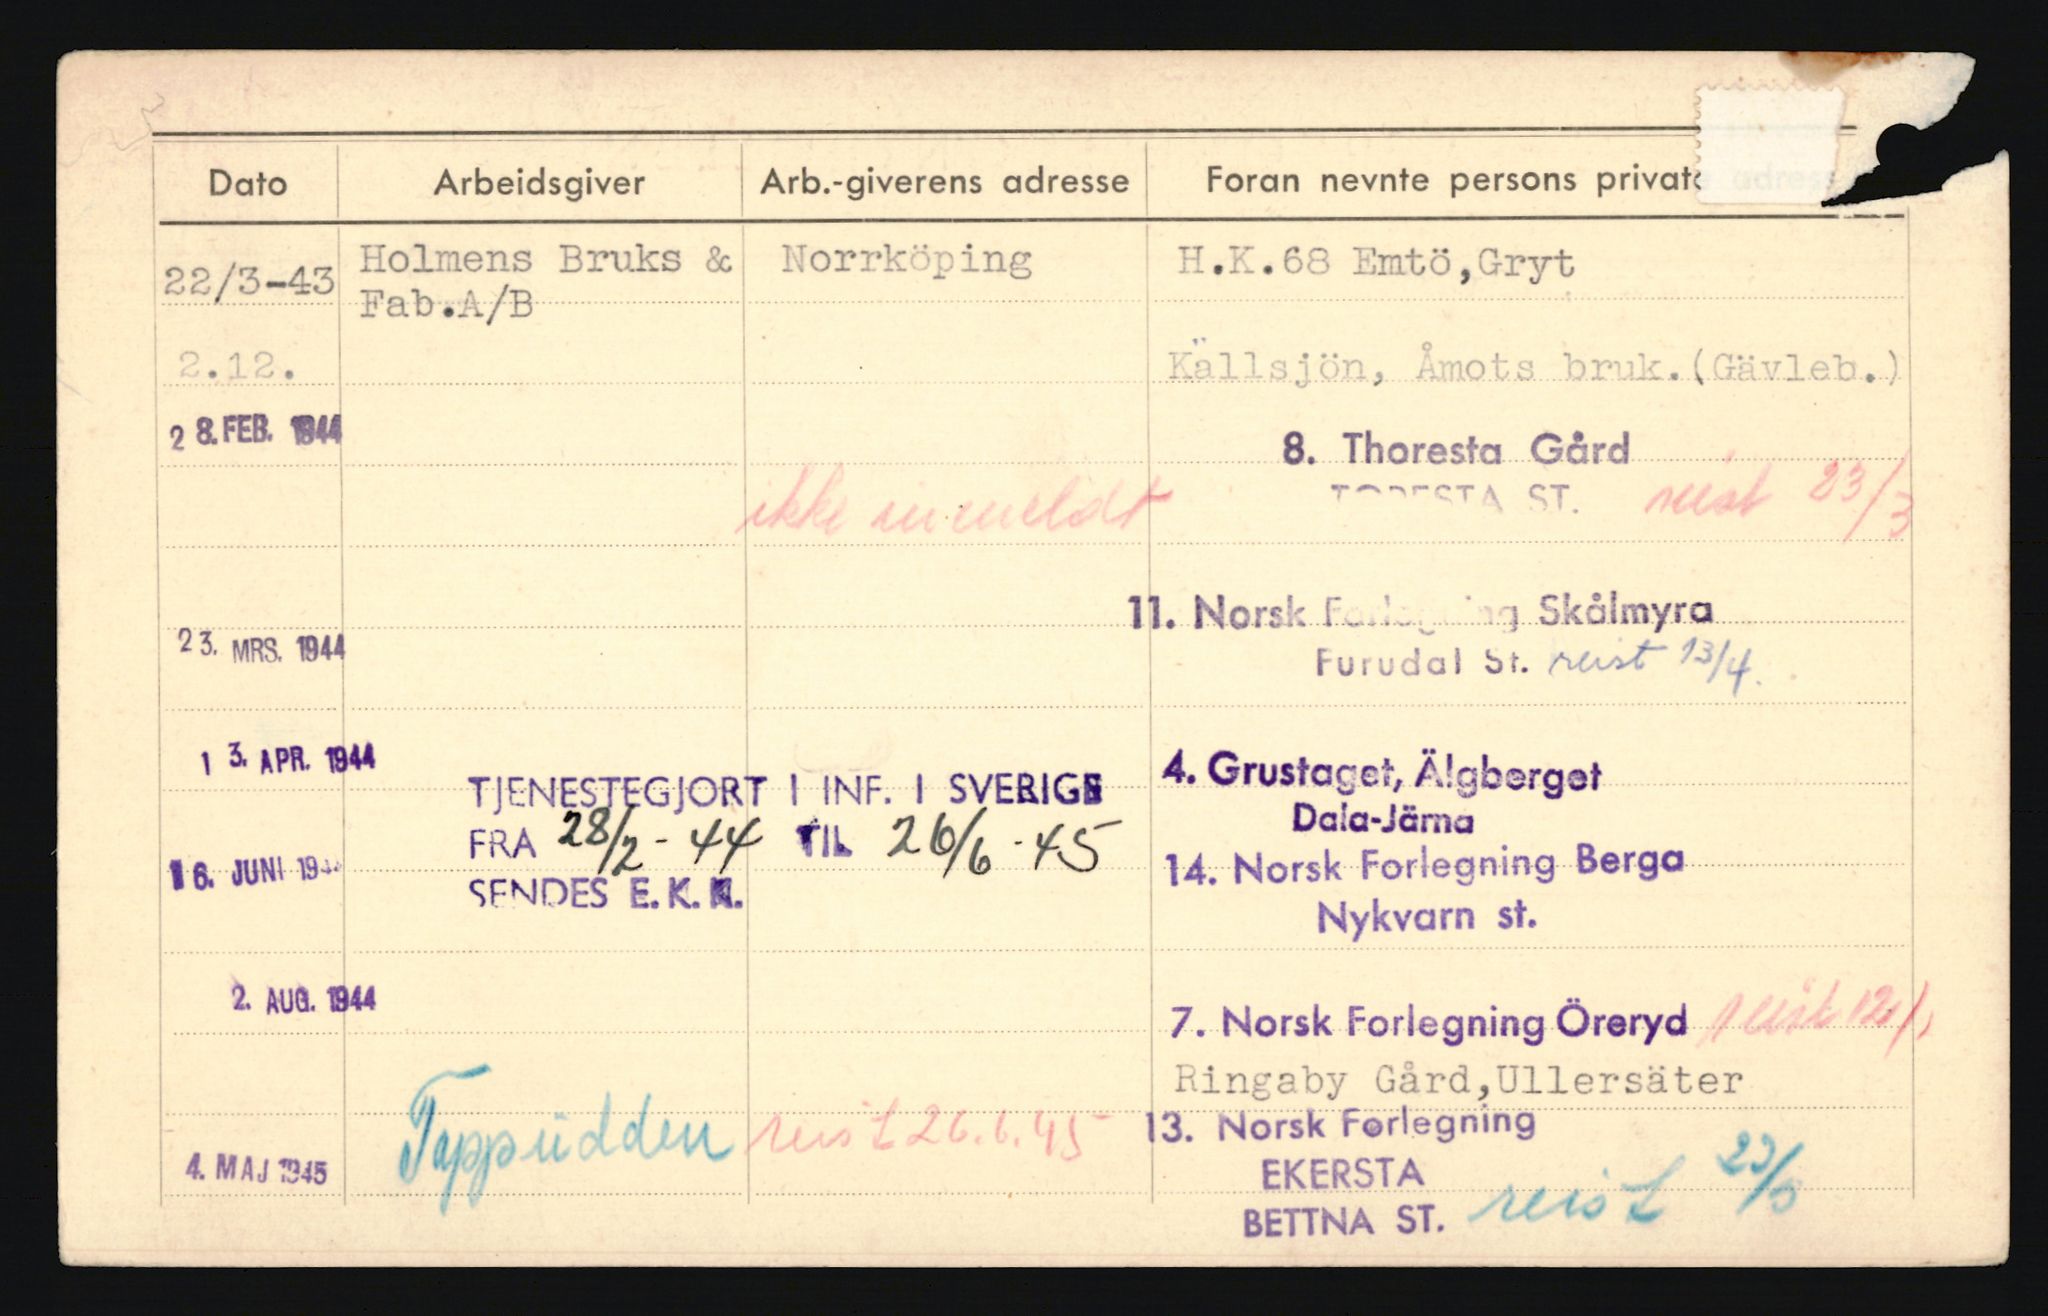 Dato Arbeidsgiver Arb.-giverens adresse Foran nevnte persons private adress
22/3-43 Holmens Bruks & Norrköping H.K.68 Emtö,Gryt
Fab.A/B
2.12. Källsjön, Åmots bruk.(Gävleb.)
28. FEB. 1944 8. Thoresta Gård
ikke inmeldt TORESTA ST. reist 23/3
11. Norsk Forlegning Skålmyra
23. MRS. 1944 Furudal St. reist 13/4.
13. APR. 1944 4. Grustaget, Älgberget
TJENESTEGJORT I INF. I SVERIGE
Dala-Järna
FRA 28/2-44 TIL 26/6-45
16. JUNI 1944 14. Norsk Forlegning Berga
SENDES E.K.K.
Nykvarn st.
2. AUG. 1944 7. Norsk Forlegning Öreryd reist
Ringaby Gård,Ullersäter
Tappudden reist 26.6.45 13. Norsk Forlegning
4. MAJ 1945 EKERSTA
BETTNA ST. reist